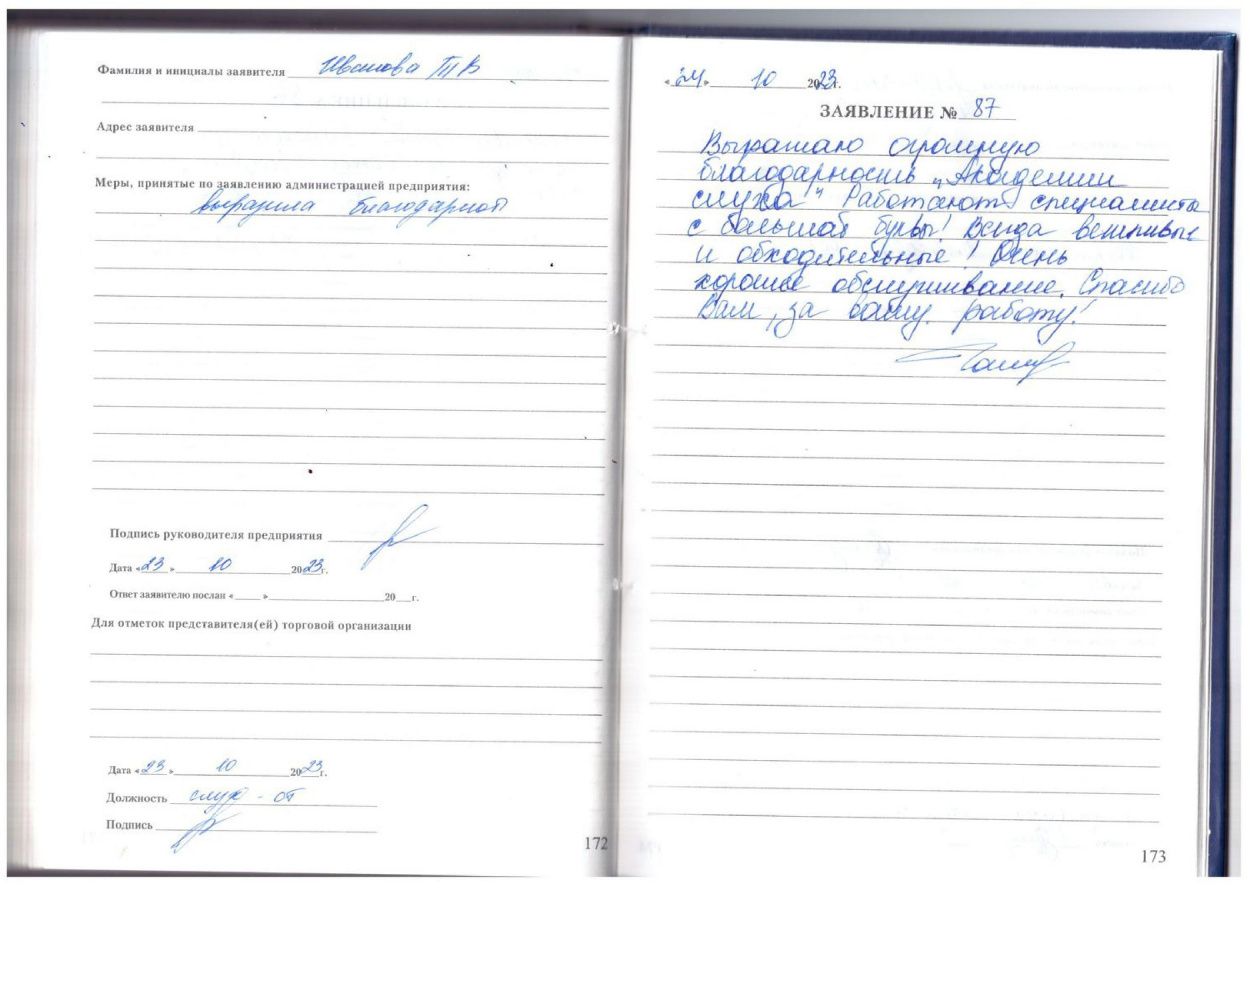 Фамилия и инициалы заявителя Иванова Т В
Адрес заявителя
Меры, принятые по заявлению администрацией предприятия:
выразила благодарность
Подпись руководителя предприятия
Дата «23» 10 2023г.
Ответ заявителю послан «    » 20   г.
Для отметок представителя(ей) торговой организации
Дата «23» 10 2023г.
Должность
Подпись
172
«24» 10 2023г.
ЗАЯВЛЕНИЕ № 87
Выражаю огромную
благодарность „Академии
слуха" Работают специалисты
с большой буквы! Всегда вежливые
и обходительные! Очень
хорошее обслуживание. Спасибо
Вам, за вашу работу!
173